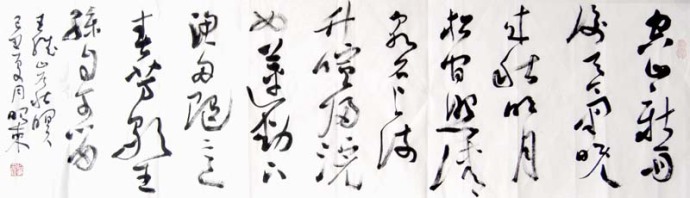 空山新雨
後天氣晚
来秋明月
松間照清
泉石上流
竹喧归浣
女蓮動下
渔舟随意
春芳歇王
孫自可留
王维山居秋暝
己丑夏月昭東